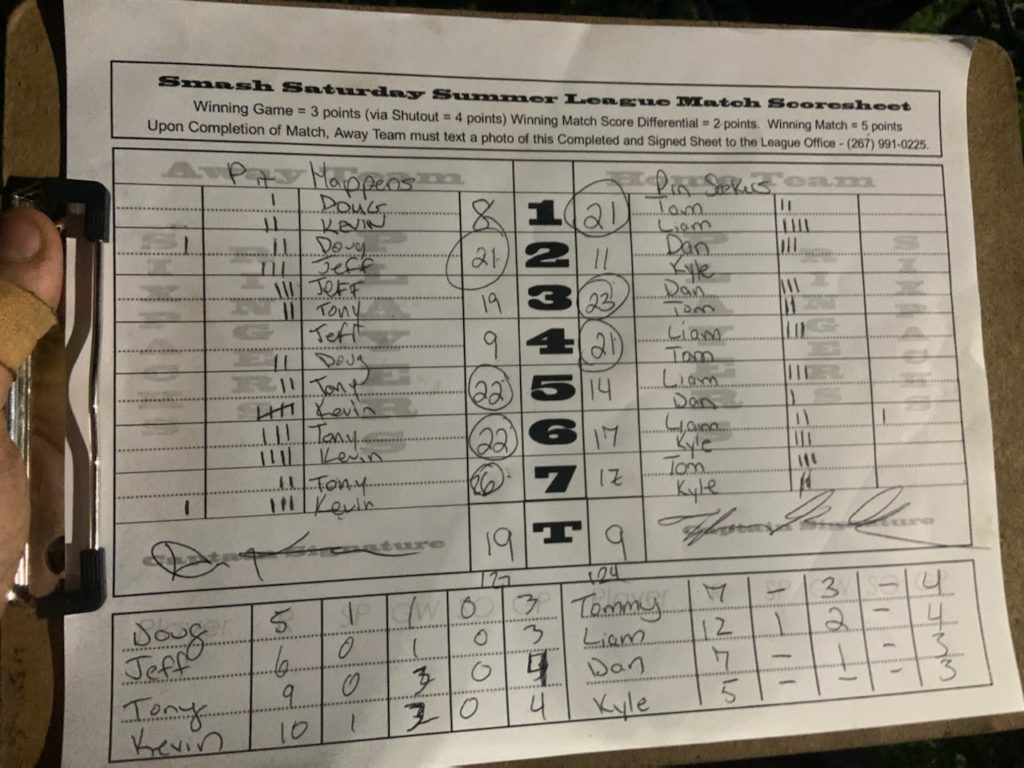 Smash Saturday Summer League Match Scoresheet
Winning Game = 3 points (via Shutout = 4 points) Winning Match Score Differential = 2 points. Winning Match = 5 points
Upon Completion of Match, Away Team must text a photo of this Completed and Signed Sheet to the League Office - (267) 991-0225.
Away Team Home Team
Pit Happens Pin Seekers
SIXPACKS RINGERS PLAYERS PLAYERS RINGERS SIXPACKS
I DOUG 8 1 21 Tom II
II KEVIN Liam IIII
I II Doug 21 2 11 Dan III
III Jeff Kyle
III Jeff 19 3 23 Dan III
II Tony Tom II
Jeff 9 4 21 Liam III
II Doug Tom
II Tony 22 5 14 Liam III
Kevin Dan I
III Tony 22 6 17 Liam II I
IIII Kevin Kyle III
II Tony 7 Tom III
I III Kevin Kyle II
Captain Signature 19 T 9 Captain Signature
127 124
Player SP GW SO GP Player SP GW SO GP
Doug 5 1 1 0 3 Tommy 7 - 3 - 4
Jeff 6 0 1 0 3 Liam 12 1 2 - 4
Tony 9 0 3 0 4 Dan 7 - 1 - 3
Kevin 10 1 0 4 Kyle 5 - - - 3